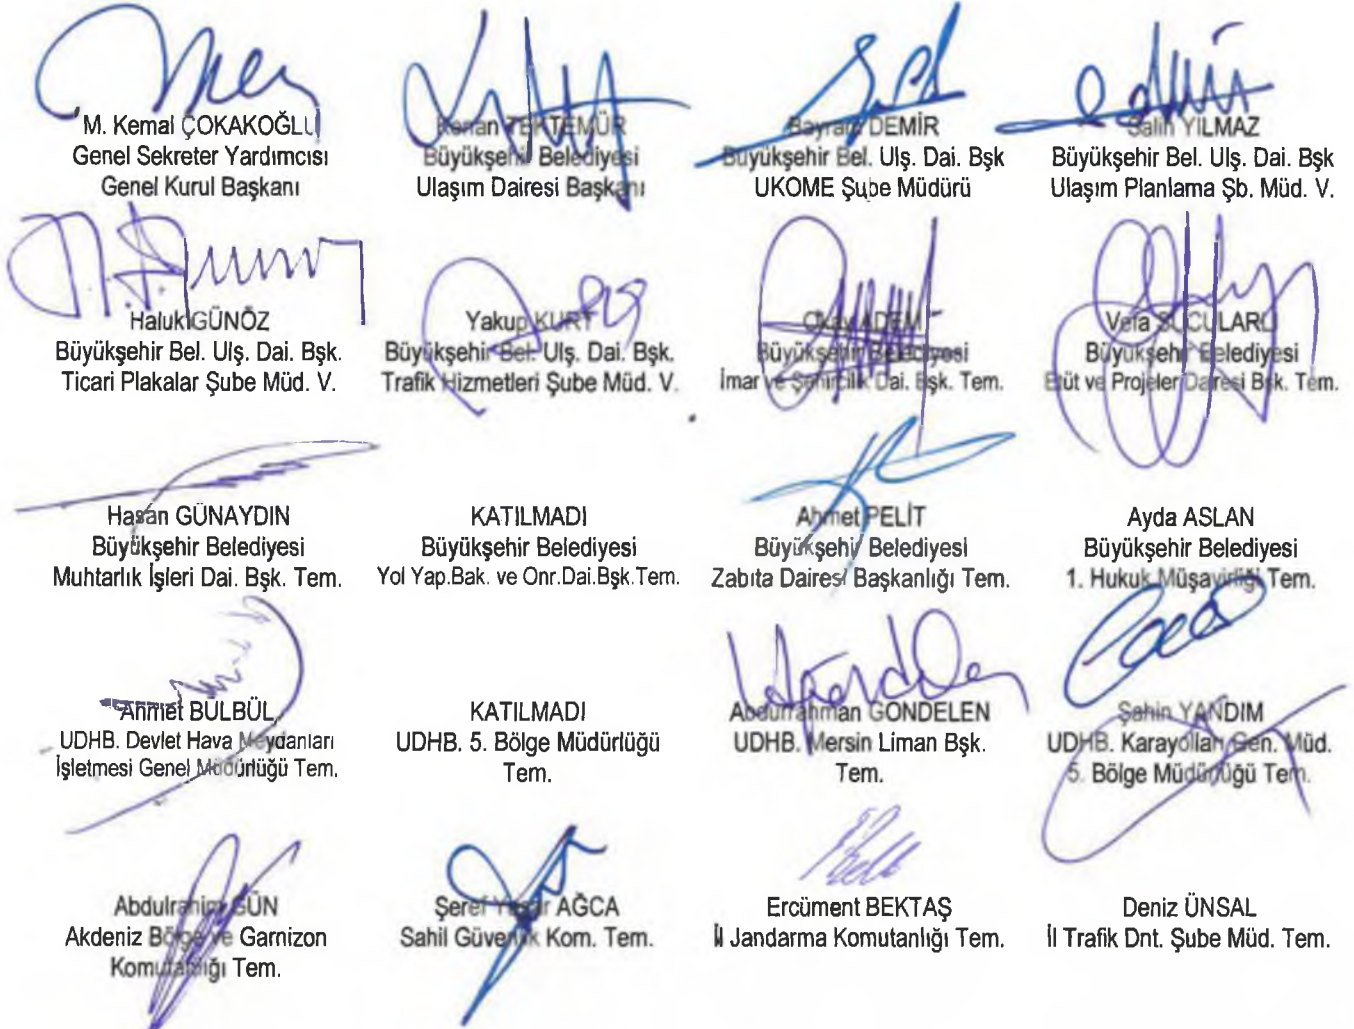 M. Kemal ÇOKAKOĞLU
Genel Sekreter Yardımcısı
Genel Kurul Başkanı
Kenan TEKTEMÜR
Büyükşehir Belediyesi
Ulaşım Dairesi Başkanı
Bayram DEMİR
Büyükşehir Bel. Ulş. Dai. Bşk
UKOME Şube Müdürü
Salih YILMAZ
Büyükşehir Bel. Ulş. Dai. Bşk
Ulaşım Planlama Şb. Müd. V.
Haluk GÜNÖZ
Büyükşehir Bel. Ulş. Dai. Bşk.
Ticari Plakalar Şube Müd. V.
Yakup KURT
Büyükşehir Bel. Ulş. Dai. Bşk.
Trafik Hizmetleri Şube Müd. V.
Okay ADEM
Büyükşehir Belediyesi
İmar ve Şehircilik Dai. Bşk. Tem.
Vefa SUCULARLI
Büyükşehir Belediyesi
Etüt ve Projeler Dairesi Bşk. Tem.
Hasan GÜNAYDIN
Büyükşehir Belediyesi
Muhtarlık İşleri Dai. Bşk. Tem.
KATILMADI
Büyükşehir Belediyesi
Yol Yap.Bak. ve Onr.Dai.Bşk.Tem.
Ahmet PELİT
Büyükşehir Belediyesi
Zabıta Dairesi Başkanlığı Tem.
Ayda ASLAN
Büyükşehir Belediyesi
1. Hukuk Müşavirliği Tem.
Ahmet BÜLBÜL
UDHB. Devlet Hava Meydanları
İşletmesi Genel Müdürlüğü Tem.
KATILMADI
UDHB. 5. Bölge Müdürlüğü
Tem.
Abdurrahman GÖNDELEN
UDHB. Mersin Liman Bşk.
Tem.
Şahin YANDIM
UDHB. Karayolları Gen. Müd.
5. Bölge Müdürlüğü Tem.
Abdulrahim GÜN
Akdeniz Bölge ve Garnizon
Komutanlığı Tem.
Şeref Yaşar AĞCA
Sahil Güvenlik Kom. Tem.
Ercüment BEKTAŞ
İl Jandarma Komutanlığı Tem.
Deniz ÜNSAL
İl Trafik Dnt. Şube Müd. Tem.